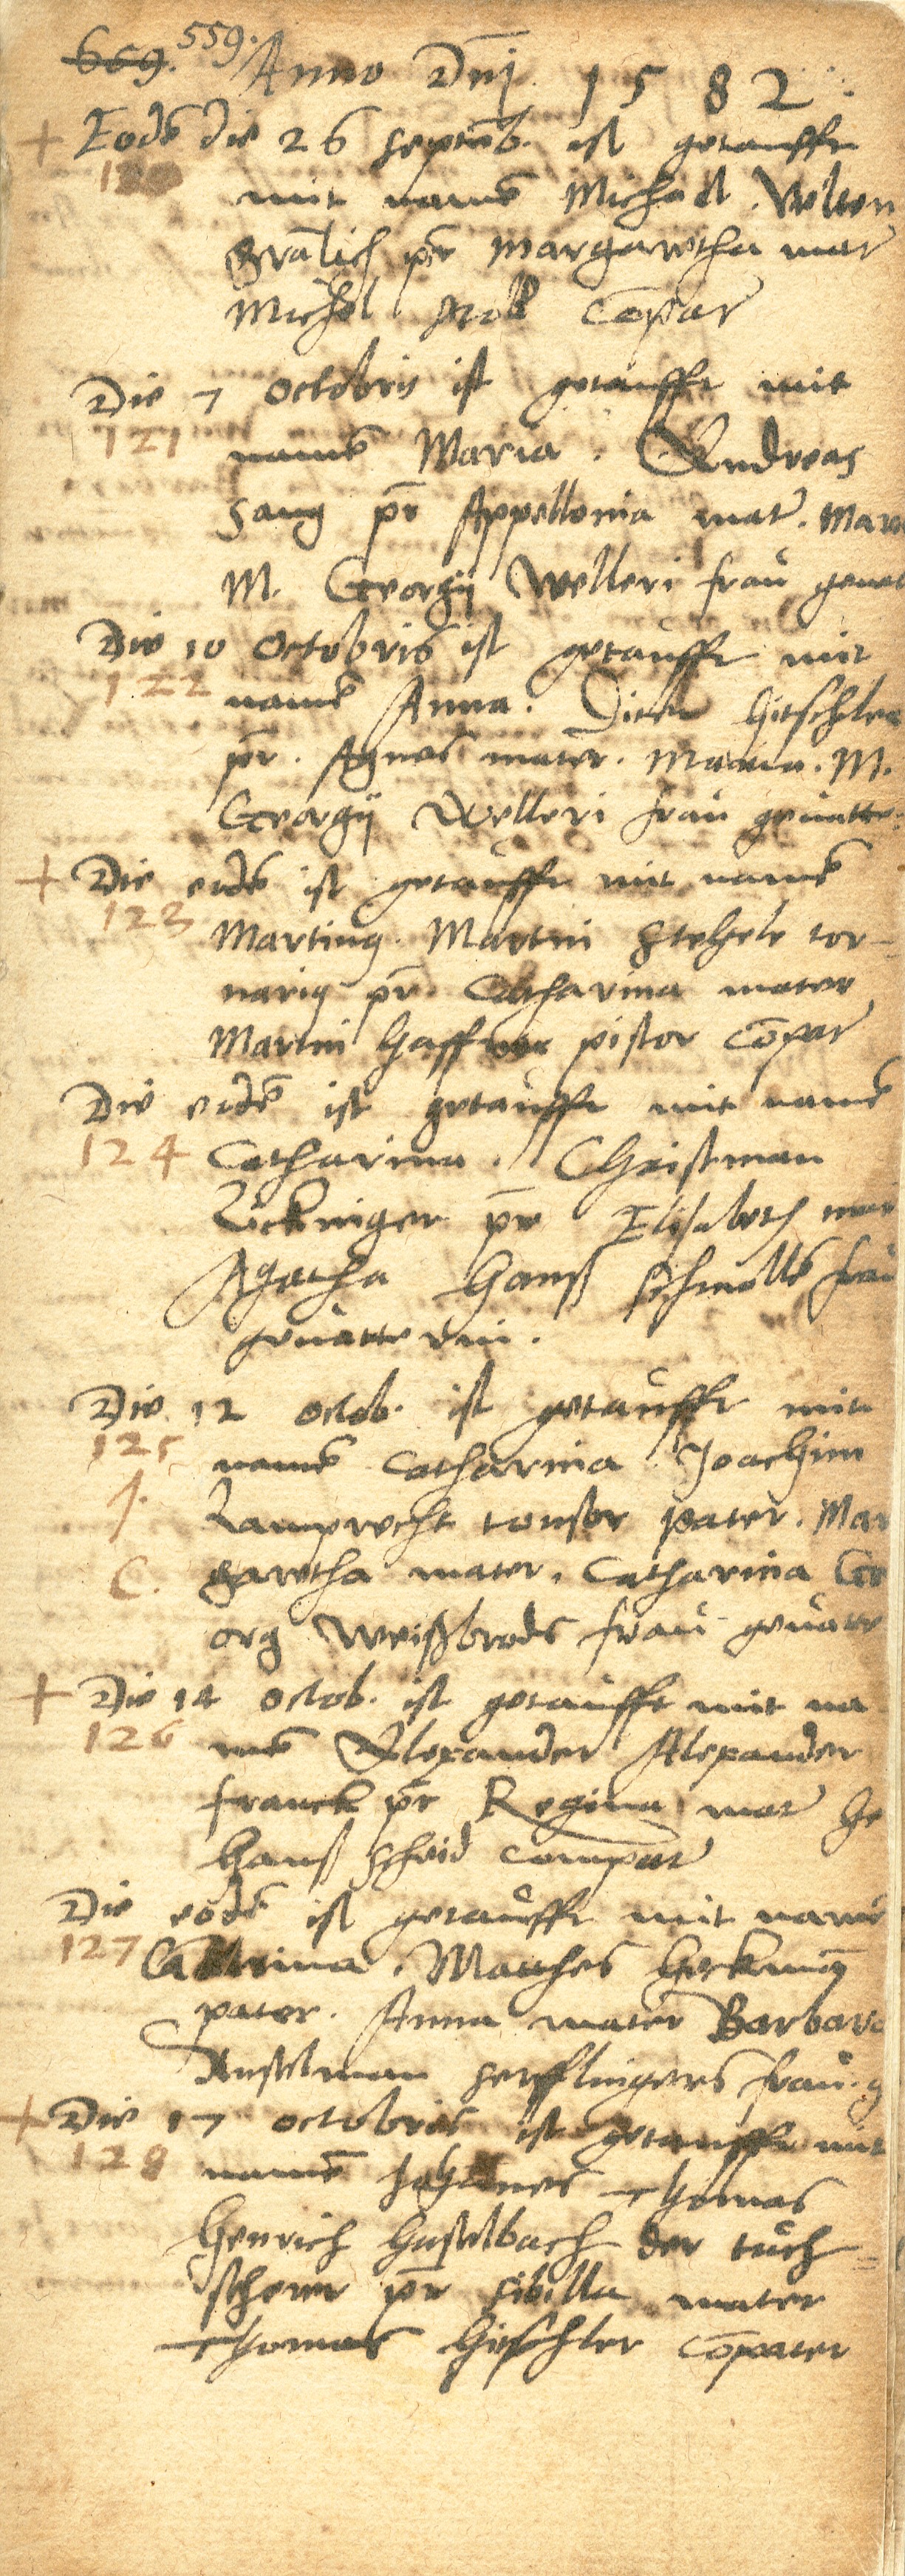 669. 559.
Anno Dnj 1582
+ Eodē die 26 septēb. ist getaufft
120
mit namē Michael. Velten
Grālich pr̄ Margaretha mat
Michel Compat
Die 7 octobris ist getaufft mit
121
namē Maria. Andreas
Sang pr̄ Appellonia mat. Mar
M. Georgij Welleri frau geuat
Die 10 octobris ist getaufft mit
122
namē Anna. Hirschler
pr̄. Agnes mater. Maria. M.
Georgij Welleri frau geuatte
+ Die eodē ist getaufft mit namē
123
Martinus. Martin Stehele tor-
narius pr̄. Catharina mater
Martin Haffner pistor Cōpat
Die eodē ist getaufft mit namē
124
Catharina. Christman
Lückniger pr̄ Elisabeth mat
Agatha Hanß frau
geuatterin.
Die 12 octob. ist getaufft mit
125
namē Catharina Joachim
J.
Lamprecht tonsor pater. Mar
C.
garetha mater. Catharina Ge
org Weißbrods frau geuatt
+ Die 14 octob. ist getaufft mit na
126
men Alexander Alexander
Franck pr̄ Regina mat Je
Hanß Scheid compat
Die eodē ist getaufft mit namē
127
Catrina. Matthes
pater. Anna mater Barbara
Anstelman frau. g
+ Die 17 octobris ist getaufft mit
128
namē Johannes Thomas
Henrich Hastelbach der tuch=
scherer pr̄ Sibilla mater
Thomas Hirschler Cōpater